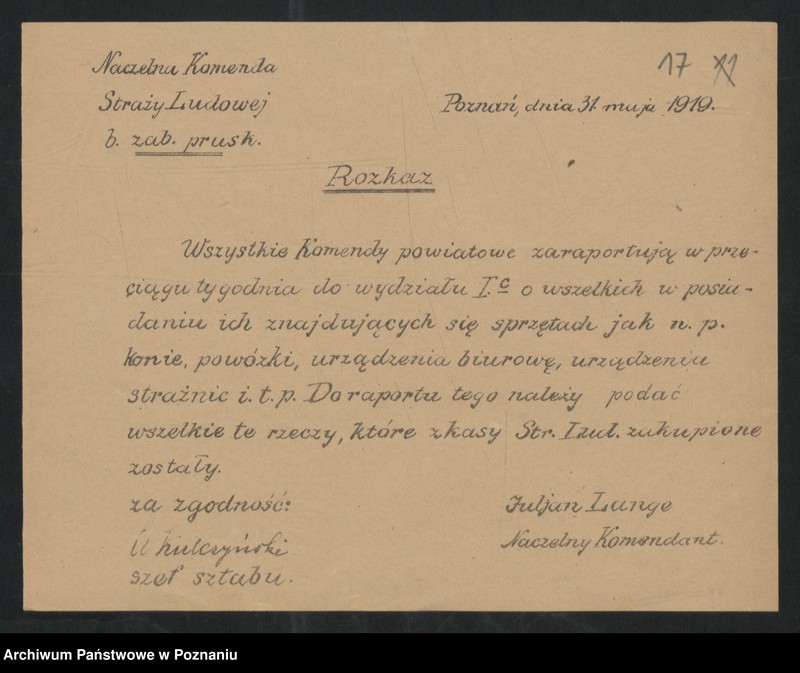 Naczelna Komenda
Straży Ludowej
b. zab. prusk.
17 XI
Poznań, dnia 31. maja 1919.
Rozkaz
Wszystkie Komendy powiatowe zaraportują w prze-
ciągu tygodnia do wydziału I.c o wszelkich w posia-
daniu ich znajdujących się sprzętach jak n. p.
konie, powózki, urządzenia biurowe, urządzenia
strażnic i. t. p. Do raportu tego należy podać
wszelkie te rzeczy, które z kasy Str. Lud. zakupione
zostały.
za zgodność:
Kulczyński
szef sztabu.
Juljan Lange
Naczelny Komendant.
Archiwum Państwowe w Poznaniu